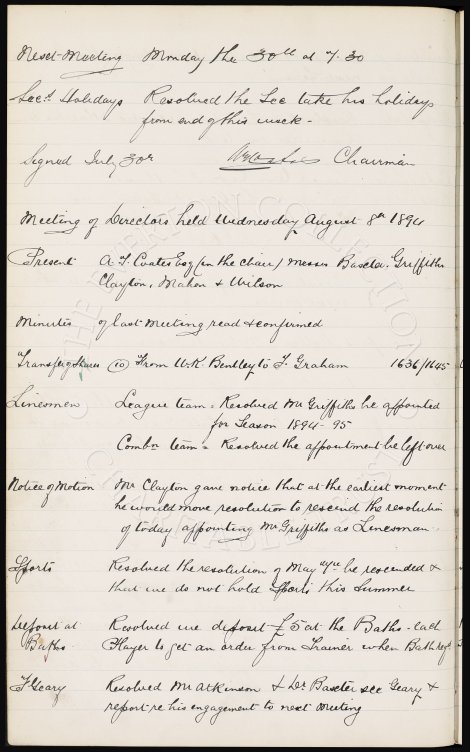 Next Meeting Monday the 30th at 7.30
Sec's Holidays Resolved the Sec take his holidays
from end of this week -
Signed July 30th Chairman
Meeting of Directors held Wednesday August 8th 1894
Present A.T. Coates Esq (in the chair) Messrs Baxter. Griffiths
Clayton, Mahon & Wilson
Minutes of last Meeting read & confirmed
Transfer of Shares (10) From W.R. Bentley to F. Graham 1636/1645
Linesmen League team = Resolved Mr Griffiths be appointed
for Season 1894-95
Combn team = Resolved the appointment be left over
Notice of Motion Mr Clayton gave notice that at the earliest moment
he would move resolution to rescind the resolution
of today appointing Mr Griffiths as Linesman
Sports Resolved the resolution of May be rescinded &
that we do not hold Sports this Summer
Deposit at Resolved we deposit £5 at the Baths - each
Baths. Player to get an order from Trainer when Bath reqd
F Geary Resolved Mr Atkinson & Dr Baxter see Geary &
report re his engagement to next meeting